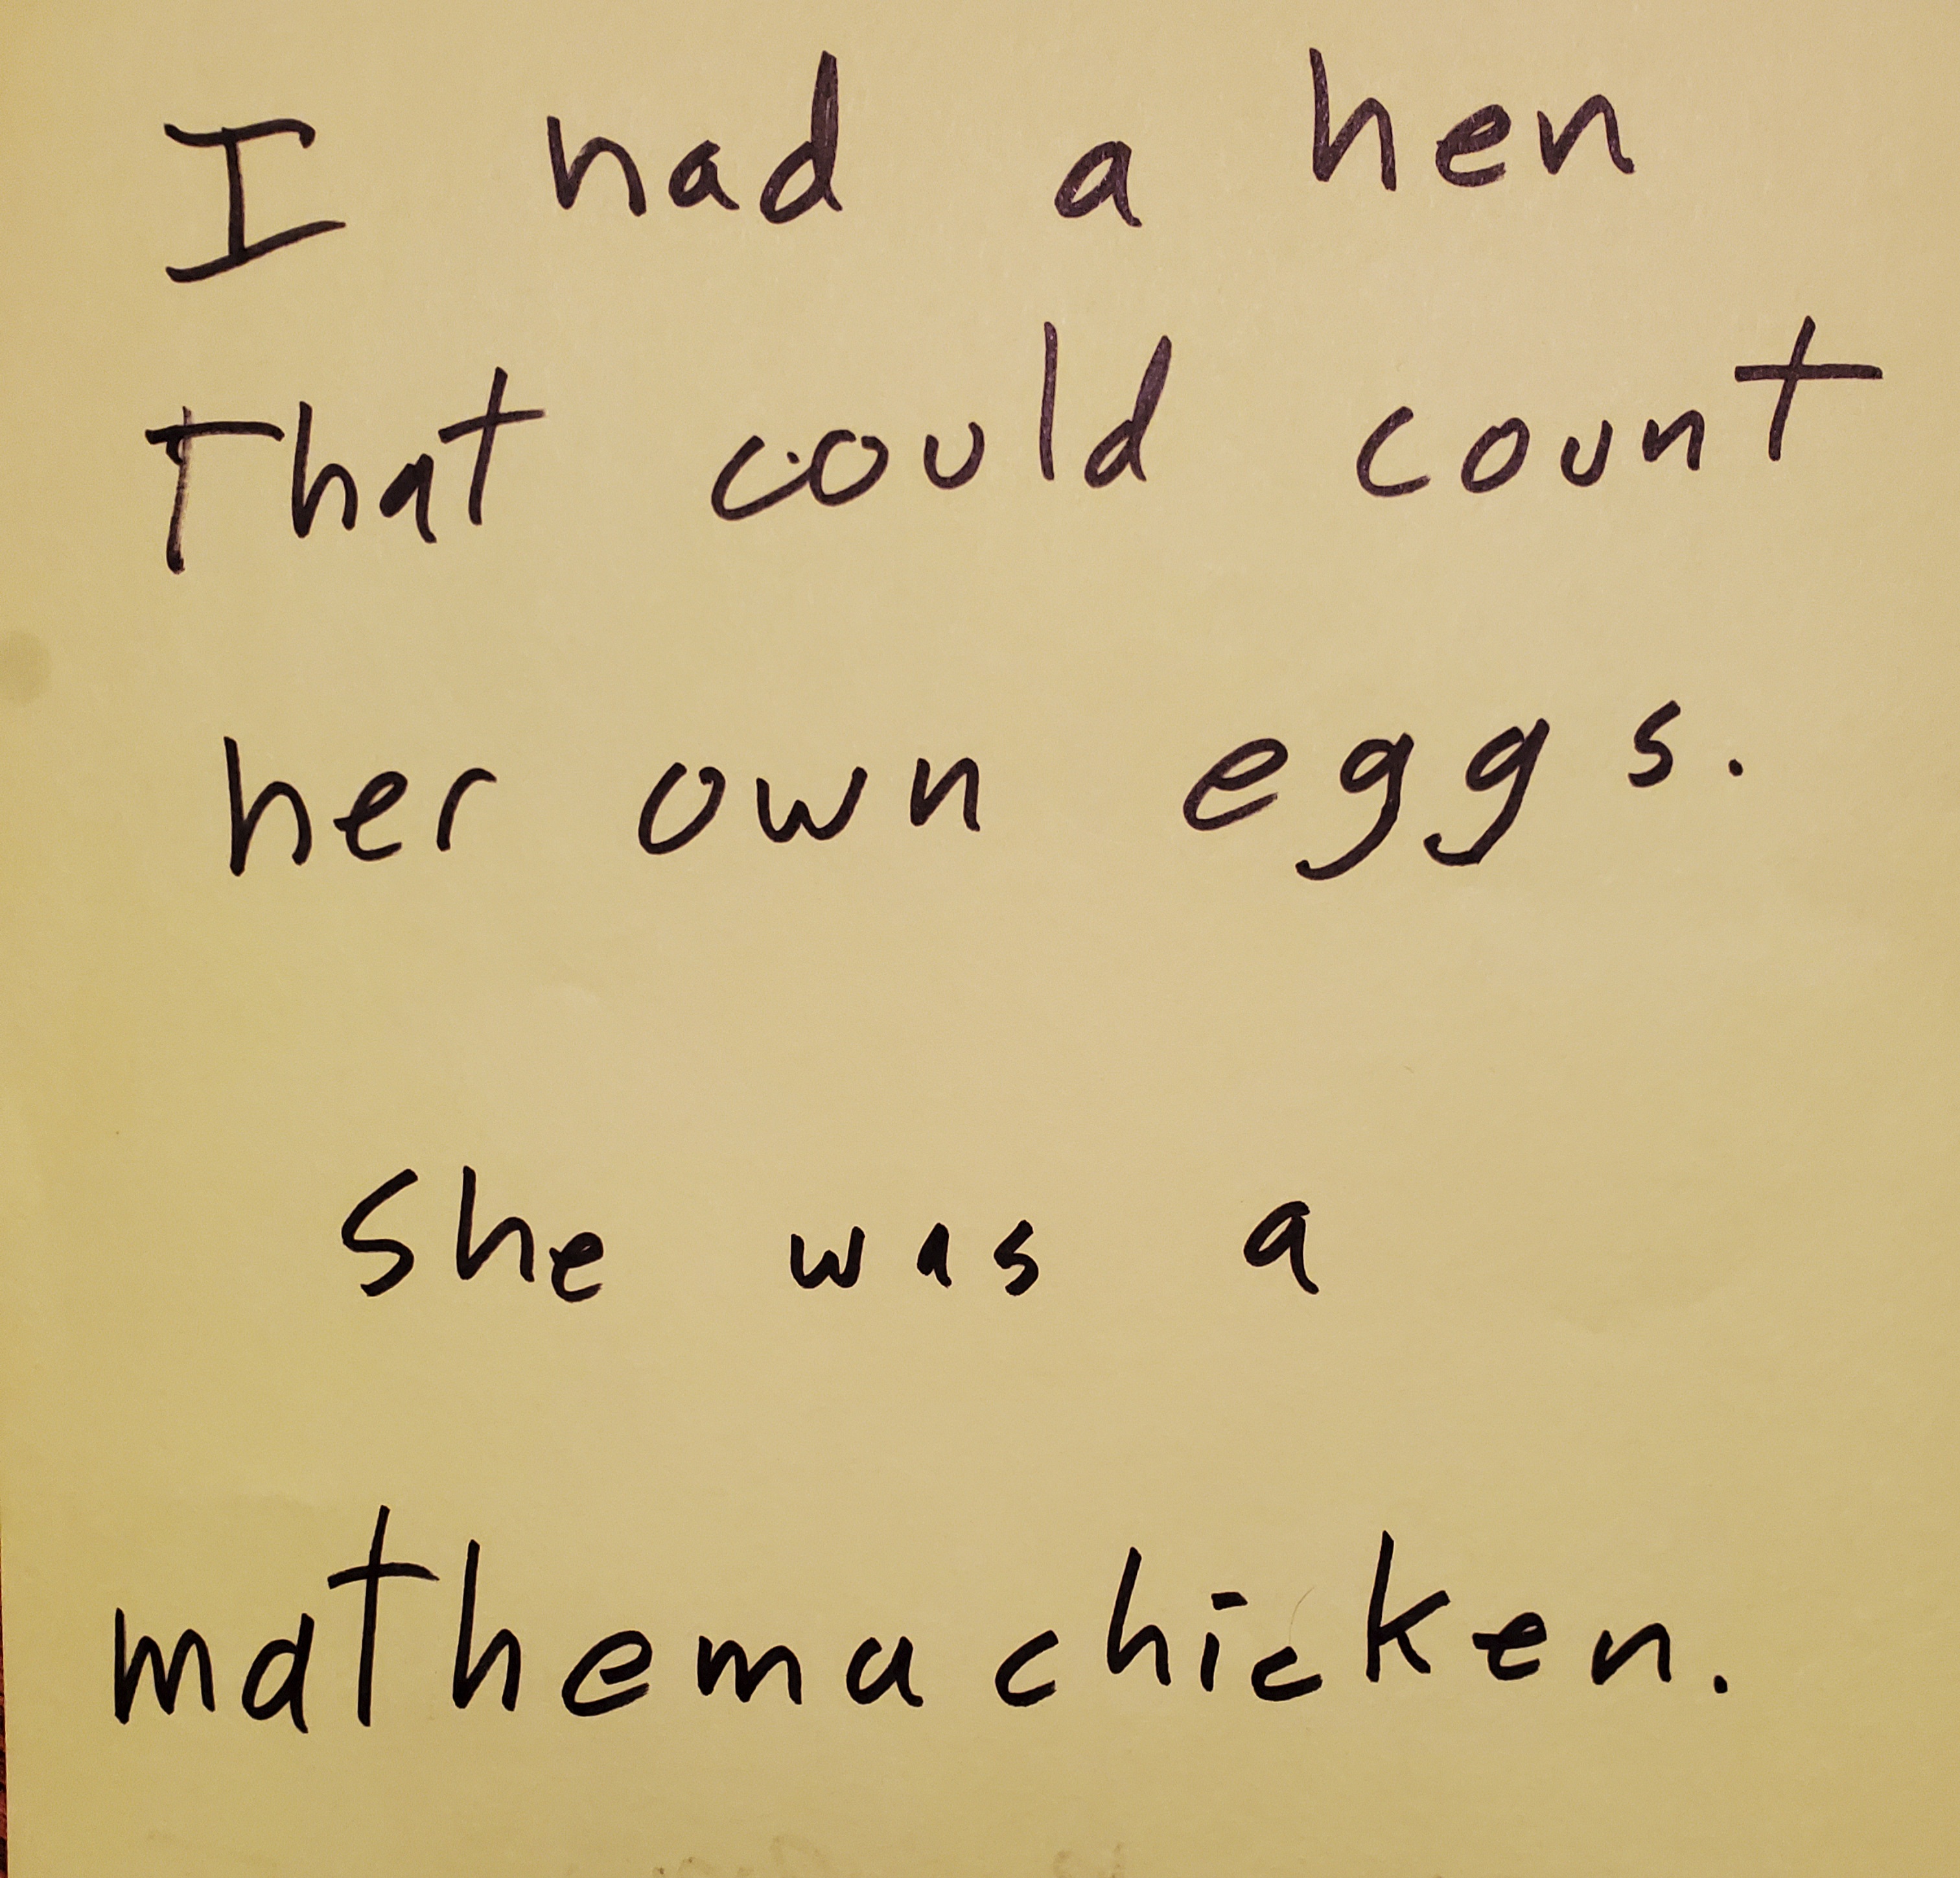 I had a hen
That could count
her own eggs.
She was a
mathemachicken.